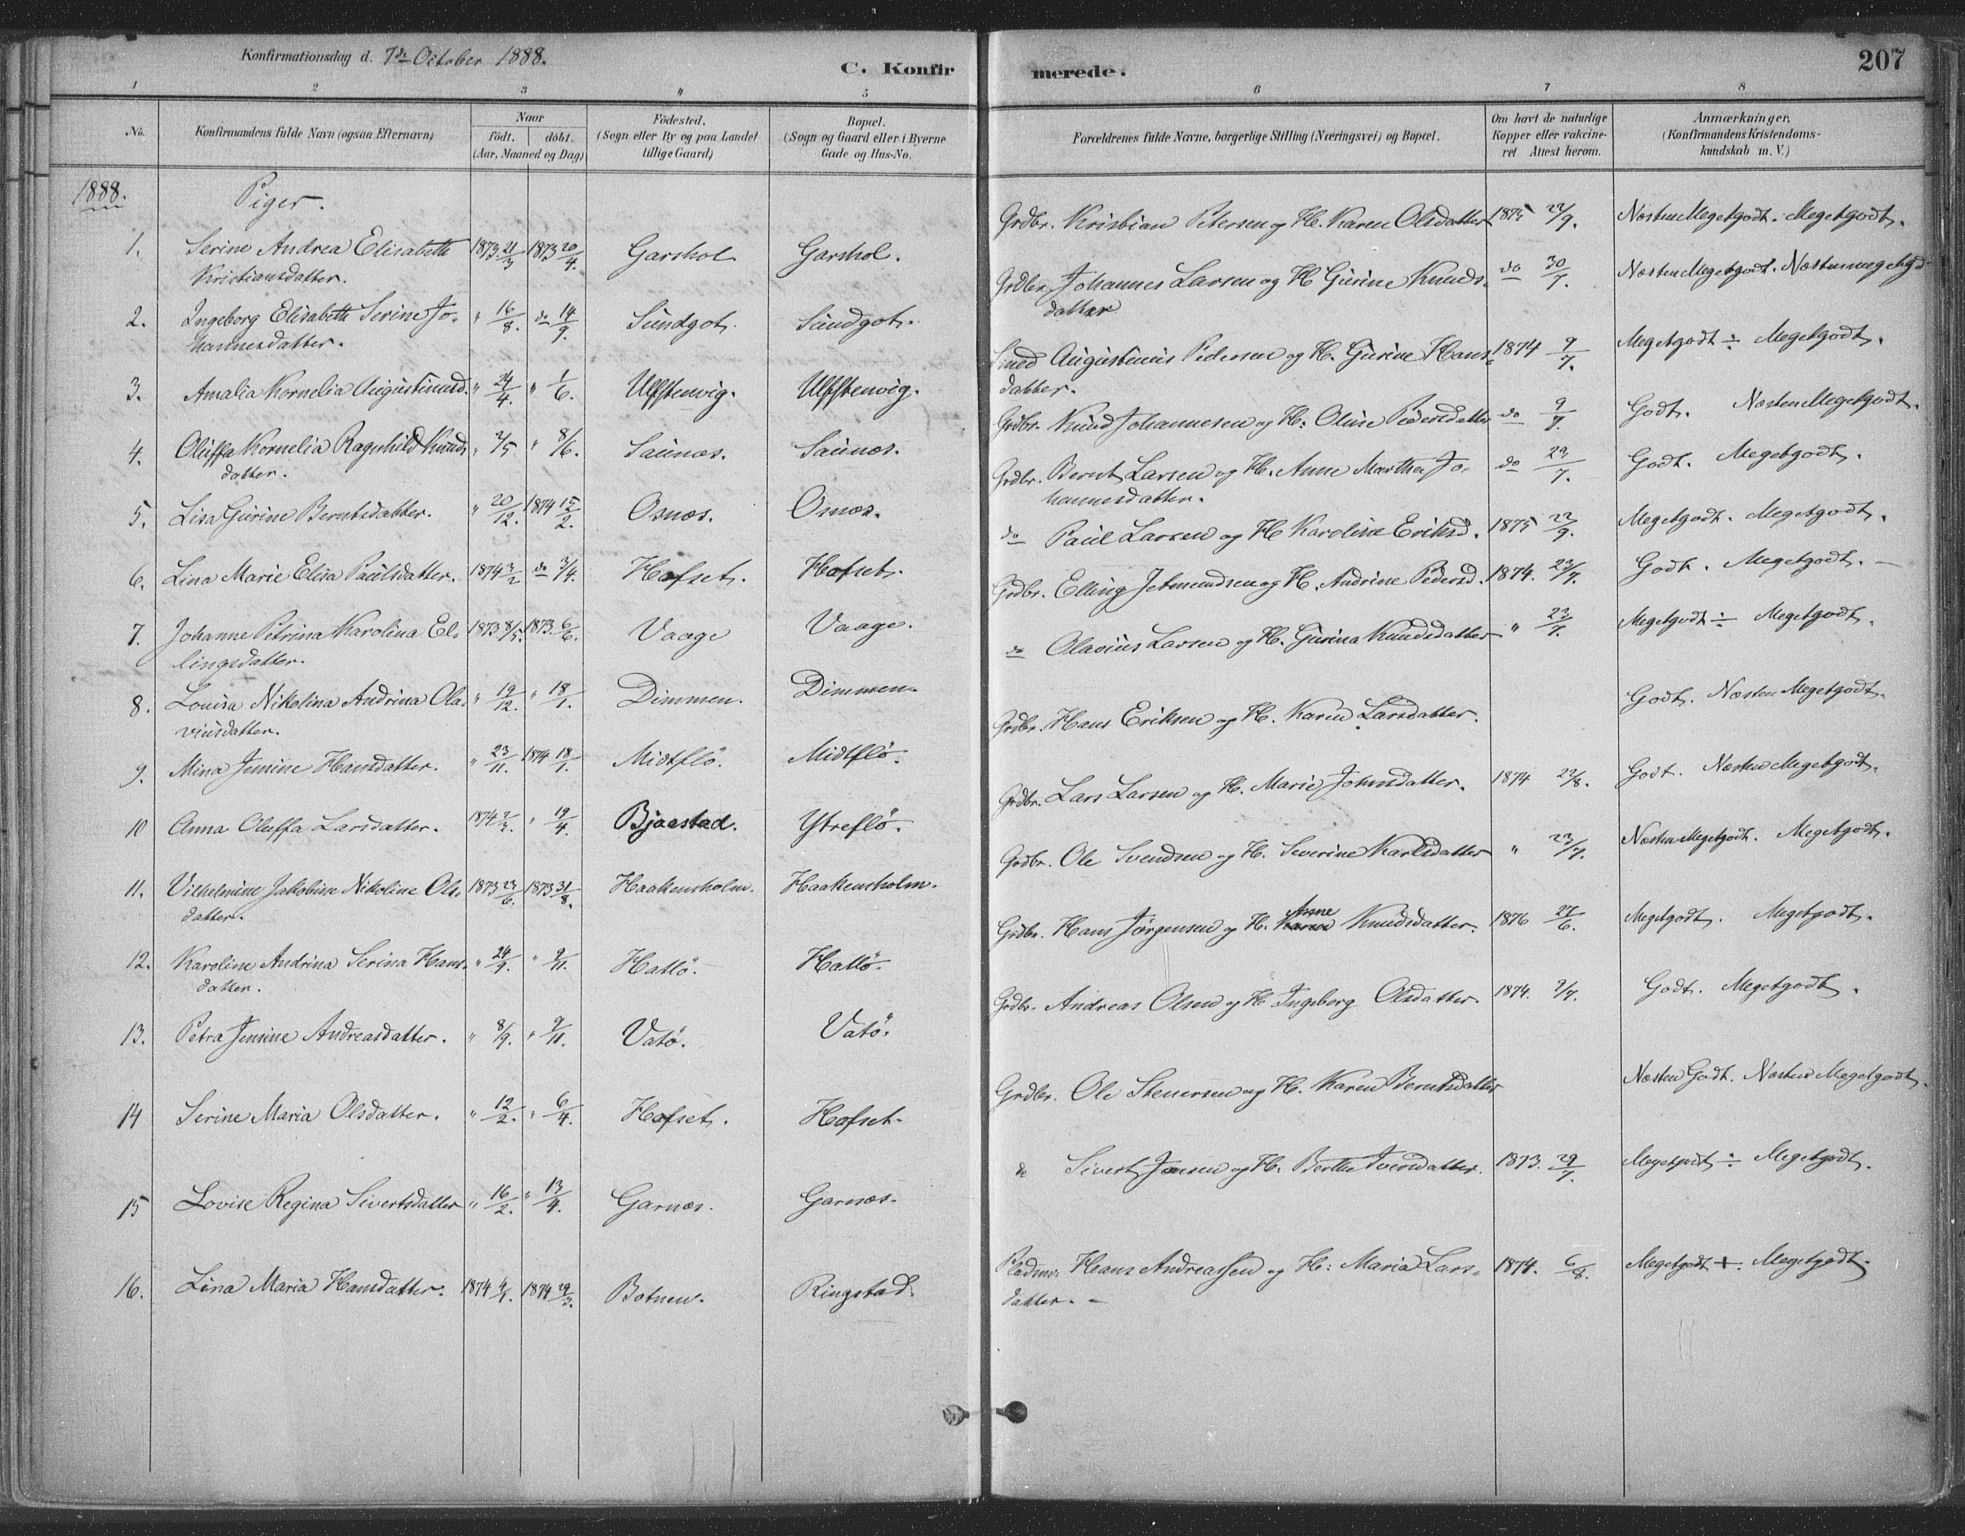 Konfirmationsdag d. 7de October 1888.
C. Konfirmerede.
207
1 2 3 4 5 6 7 8
No.
Konfirmandens fulde Navn (ogsaa Efternavn)
Naar
födt. döbt.
(Aar, Maaned og Dag)
Födested.
(Sogn eller By og paa Landet
tillige Gaard)
Bopæl.
(Sogn og Gaard eller i Byerne
Gade og Hus-No.
Forældrenes fulde Navne, borgerlige Stilling (Næringsvei) og Bopæl.
Om havt de naturlige
Kopper eller vakcine-
ret Attest herom.
Anmærkninger.
(Konfirmandens Kristendoms-
kundskab m. V.)
1888. Piger.
1. Serine Andrea Elisabeth 1873 21/3 1873 20/4. Garshol Garshol. Grdbr. Kristian Petersen og H. Karen Olsdatter 1875 22/9. Næsten Megetgodt. Megetgodt.
Kristiansdatter.
2. Ingeborg Elisabeth Serine Jo- " 16/8. do 14/9. Sundgot. Sundgot. Grdbr. Johannes Larsen og H Gurine Knuds- do 30/7. Næsten Megetgodt. Næsten meget gd
hannesdatter. datter
3. Amalia Kornelia Augustinusd. " 24/4. " 1/6. Ulfstenvig. Ulfstenvig. Smed Augustinus Pedersen og H. Gurine Hans- 1874 9/7. Megetgodt ÷ Megetgodt.
datter.
4. Oluffa Kornelia Ragnhild Knuds " 2/5 " 8/6. Saunes. Saunes. Grdbr. Knud Johannesen og H. Oline Pedersdatter do 9/7. Godt. Næsten Megetgodt.
datter.
5. Lisa Gurine Berntsdatter. " 20/12. 1874 15/2. Osnes. Osnes. Grdbr. Bernt Larsen og H. Anne Martha Jo- do 23/7. Godt. Megetgodt.
hannesdatter.
6. Lina Marie Elisa Paulsdatter. 1874 3/2 do 3/4. Hofset. Hofset. do Paul Larsen og H Karoline Eriksd. 1875 22/9. Megetgodt. Megetgodt.
7. Johanne Petrina Karolina El- 1873 8/5. 1873. 6/6. Vaage Vaage. Grdbr. Elling Jetmundsen og H. Andrine Pedersd. 1874. 23/7. Godt. Megetgodt. —
lingsdatter.
8. Louisa Nikolina Andrina Ola- " 19/12. " 18/1. Dimmen. Dimmen. do Olavius Larsen og H. Gurina Knudsdatter " 23/7. Megetgodt ÷ Megetgodt.
viusdatter.
9. Mina Jensine Hansdatter. " 23/11. 1874 18/1. Midtflö. Midtflö. Grdbr. Hans Eriksen og H. Karen Larsdatter. Godt. Næsten Megetgodt.
10 Anna Oluffa Larsdatter. 1874 2/3. " 19/4. Bjaastad. Ytreflö. Grdbr. Lars Larsen og H. Marie Johnsdatter. 1874 22/8. Godt. Næsten Megetgodt.
11. Vilhelmine Jakobine Nikoline Ols- 1873 23/6. 1873 31/8. Haakensholm. Haakensholm. Grdbr. Ole Svendsen og H. Severine Karlsdatter " 23/7. Næsten Megetgodt. Megetgodt.
datter.
12. Karoline Andrina Serina Hans- " 24/9. " 9/11. Hatlö. Hatlö. Grdbr. Hans Jörgensen og H. Anne Knudsdatter. 1876 27/6. Megetgodt. Megetgodt.
datter.
13. Petra Jensine Andreasdatter. " 8/9. " 9/11. Vatö. Vatö. Grdbr. Andreas Olsen og H. Ingeborg Olsdatter. 1874. 9/7. Godt. Megetgodt.
14 Serine Maria Olsdatter. " 12/2. " 6/4. Hofset. Hofset. Grdbr. Ole Stenersen og H. Karen Berntsdatter Næsten Godt. Næsten Megetgodt.
15 Lovise Regina Sivertsdatter " 16/2. " 13/4. Garnes. Garnes. do Sivert Jonsen og H. Berthe Iversdatter. 1873. 29/7. Megetgodt ÷ Megetgodt.
16. Lina Maria Hansdatter. 1874 1874 29/3. Botnen. Ringstad. Pladsm. Hans Andreassen og H: Maria Lars- 1874. 6/8. Megetgodt +. Megetgodt.
datter. -